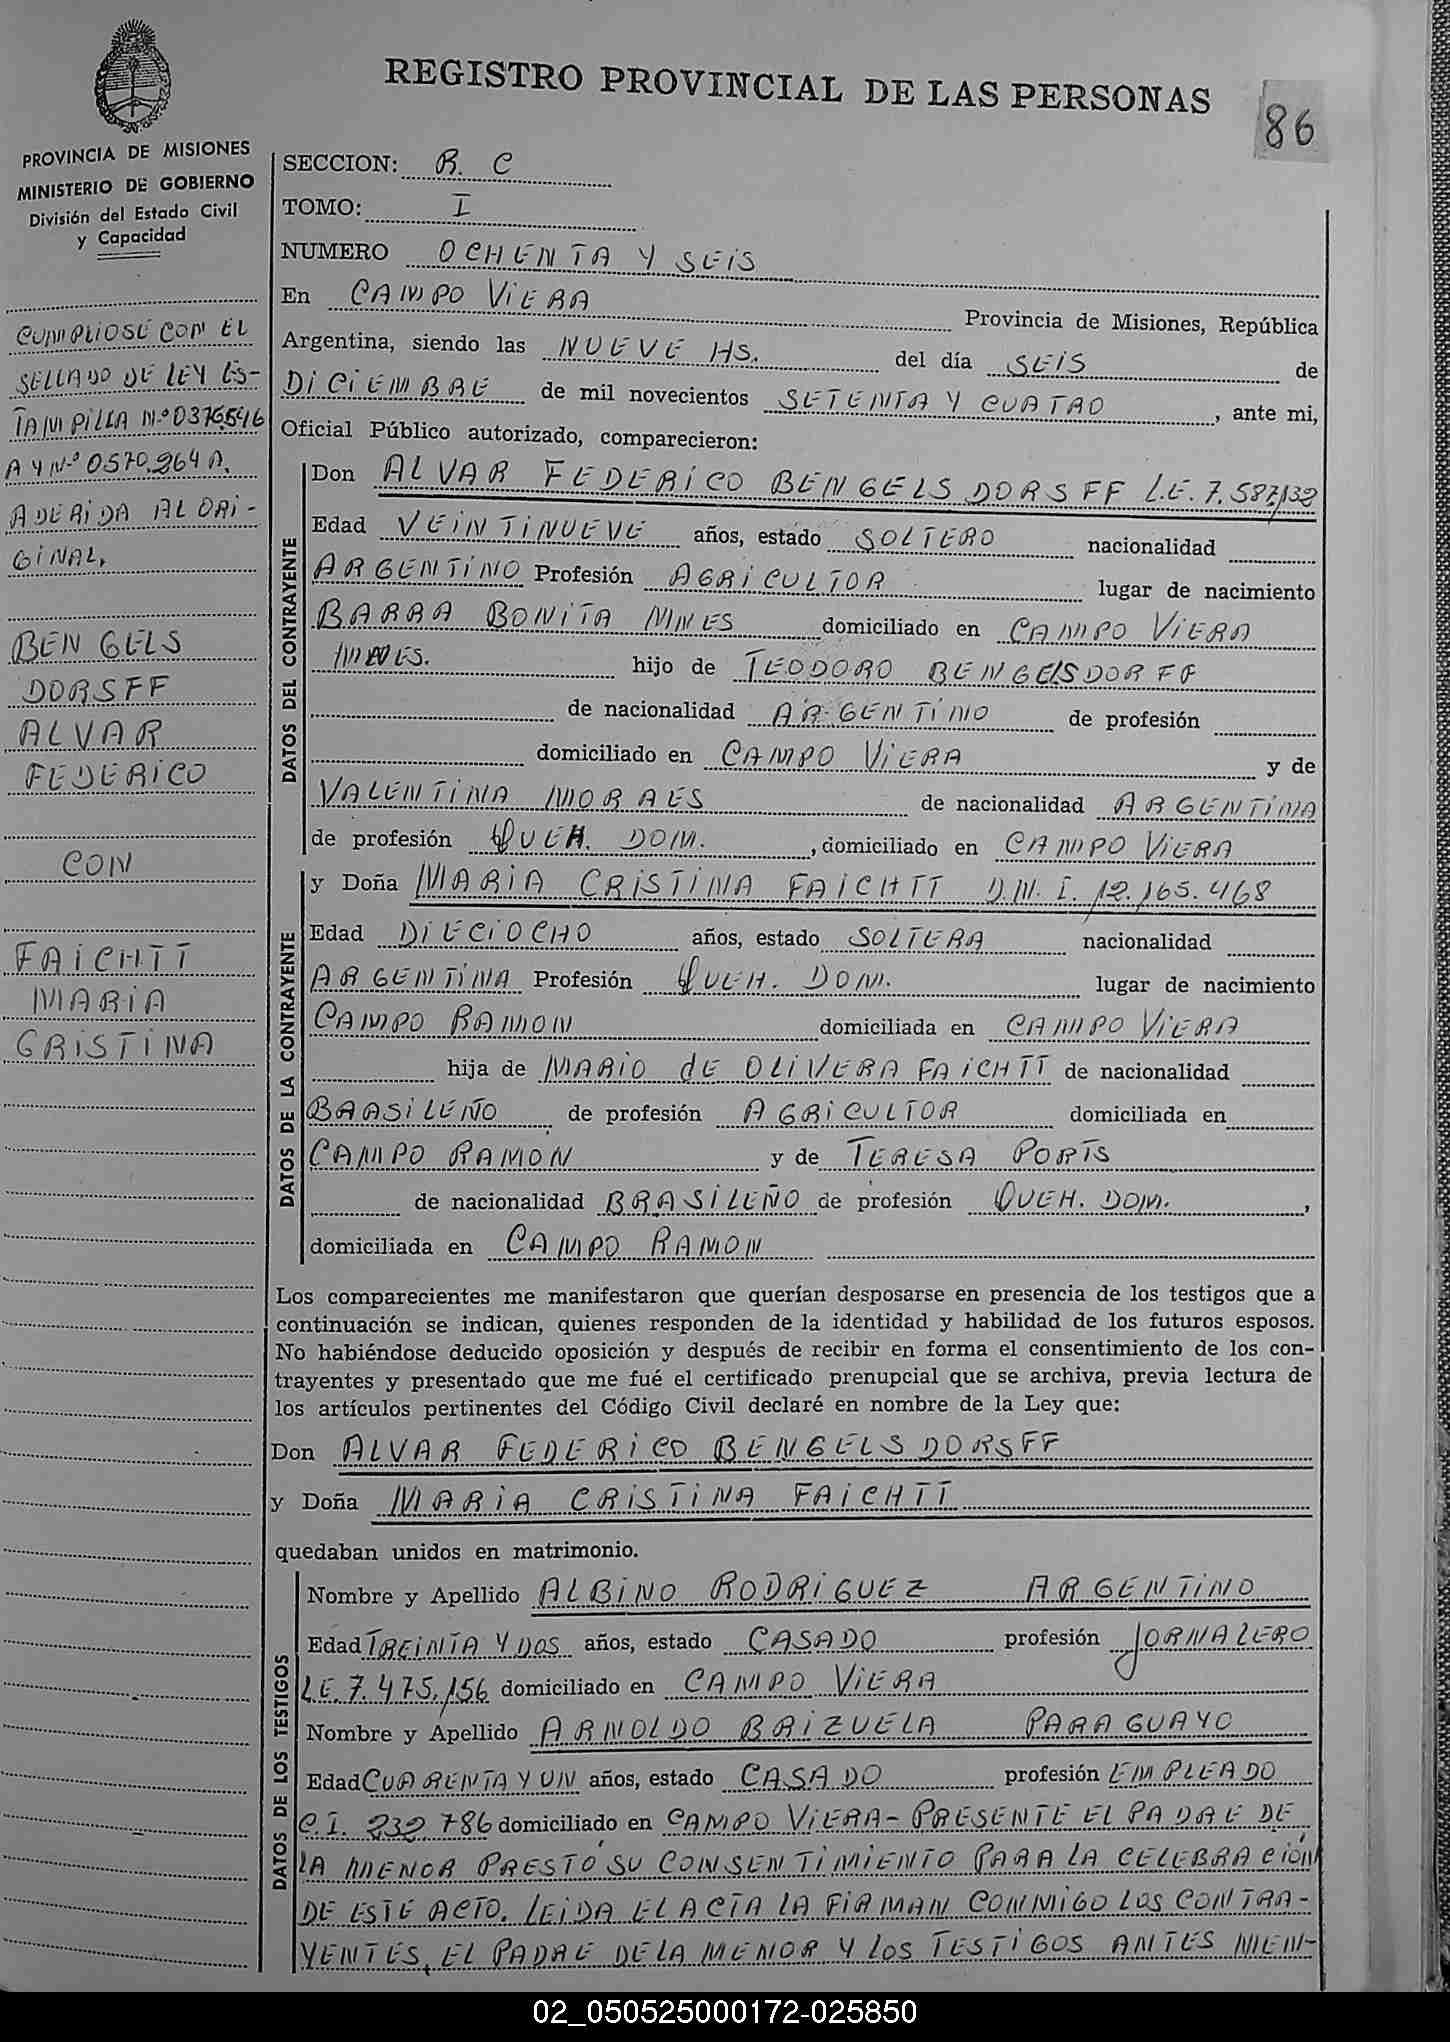 REGISTRO PROVINCIAL DE LAS PERSONAS
86
PROVINCIA DE MISIONES
MINISTERIO DE GOBIERNO
División del Estado Civil
y Capacidad
CUMPLIOSE CON EL
SELLADO DE LEY ES-
TAMPILLA Nº 0376546
A Y Nº 0570.264 A.
ADERIDA AL ORI-
GINAL,
BENGELS
DORSFF
ALVAR
FEDERICO
CON
FAICHTT
MARIA
CRISTINA
SECCION: R. C
TOMO: I
NUMERO OCHENTA Y SEIS
En CAMPO VIERA Provincia de Misiones, República
Argentina, siendo las NUEVE HS. del día SEIS de
DICIEMBRE de mil novecientos SETENTA Y CUATRO, ante mi,
Oficial Público autorizado, comparecieron:
DATOS DEL CONTRAYENTE
Don ALVAR FEDERICO BENGELSDORSFF L.E. 7.587,132
Edad VEINTINUEVE años, estado SOLTERO nacionalidad
ARGENTINO Profesión AGRICULTOR lugar de nacimiento
BARRA BONITA MNES domiciliado en CAMPO VIERA
MNES. hijo de TEODORO BENGELSDORFF
de nacionalidad ARGENTINO de profesión
domiciliado en CAMPO VIERA y de
VALENTINA MORAES de nacionalidad ARGENTINA
de profesión QUEH. DOM., domiciliado en CAMPO VIERA
DATOS DE LA CONTRAYENTE
y Doña MARIA CRISTINA FAICHTT D.N.I. 12.165.468
Edad DIECIOCHO años, estado SOLTERA nacionalidad
ARGENTINA Profesión QUEH. DOM. lugar de nacimiento
CAMPO RAMON domiciliada en CAMPO VIERA
hija de MARIO dE OLIVERA FAICHTT de nacionalidad
BRASILEÑO de profesión AGRICULTOR domiciliada en
CAMPO RAMON y de TERESA PORTS
de nacionalidad BRASILEÑO de profesión QUEH. DOM.,
domiciliada en CAMPO RAMON
Los comparecientes me manifestaron que querían desposarse en presencia de los testigos que a
continuación se indican, quienes responden de la identidad y habilidad de los futuros esposos.
No habiéndose deducido oposición y después de recibir en forma el consentimiento de los con-
trayentes y presentado que me fué el certificado prenupcial que se archiva, previa lectura de
los artículos pertinentes del Código Civil declaré en nombre de la Ley que:
Don ALVAR FEDERICO BENGELSDORSFF
y Doña MARIA CRISTINA FAICHTT
quedaban unidos en matrimonio.
DATOS DE LOS TESTIGOS
Nombre y Apellido ALBINO RODRIGUEZ ARGENTINO
Edad TREINTA Y DOS años, estado CASADO profesión JORNALERO
L.E. 7.475.156 domiciliado en CAMPO VIERA
Nombre y Apellido ARNOLDO BRIZUELA PARAGUAYO
Edad CUARENTA Y UN años, estado CASADO profesión EMPLEADO
C.I. 232 786 domiciliado en CAMPO VIERA- PRESENTE EL PADRE DE
LA MENOR PRESTÓ SU CONSENTIMIENTO PARA LA CELEBRACIÓN
DE ESTE ACTO. LEIDA EL ACTA LA FIRMAN CONMIGO LOS CONTRA-
YENTES, EL PADRE DE LA MENOR Y LOS TESTIGOS ANTES MEN-
02_050525000172-025850